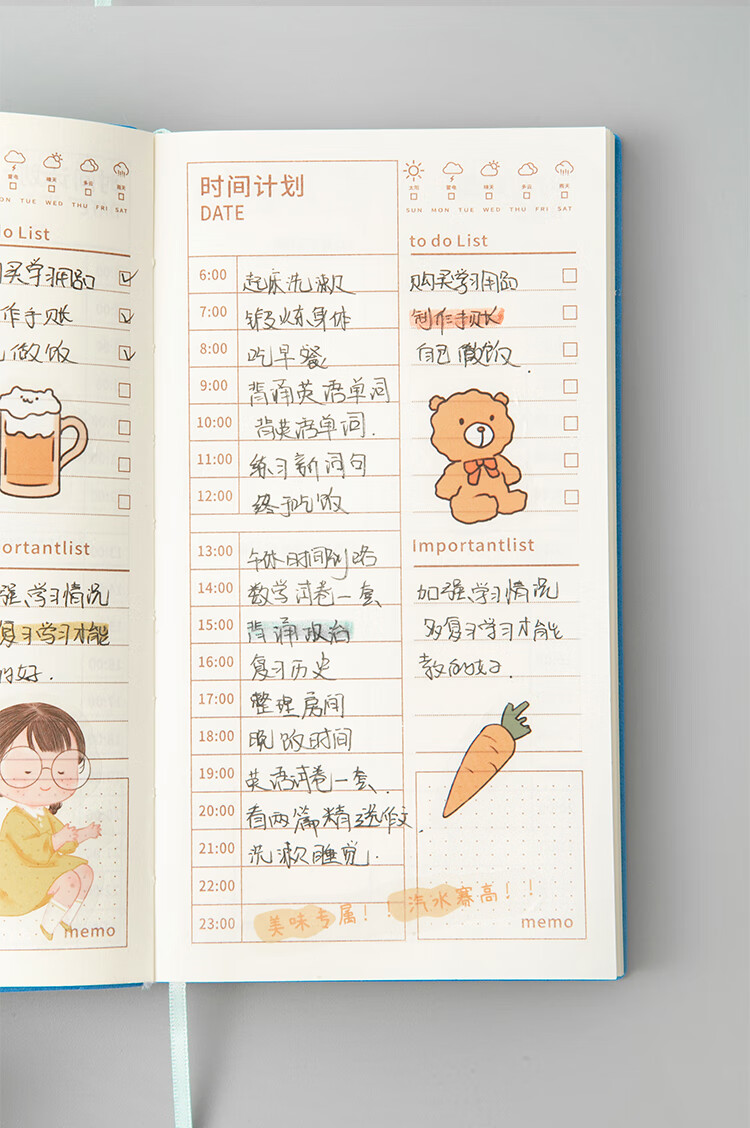 雷电 晴天 多云 雨天
ON TUE WED THU FRI SAT
o List
买学习用品
作手账
做饭
ortantlist
强学习情况
复习学习才能
的好.
memo
时间计划
DATE
6:00 起床洗漱
7:00 锻炼身体
8:00 吃早餐
9:00 背诵英语单词
10:00 背英语单词.
11:00 练习新词句
12:00 终于吃饭
13:00 午休时间到咯
14:00 数学试卷一套
15:00 背诵政治
16:00 复习历史
17:00 整理房间
18:00 晚饭时间
19:00 英语试卷一套.
20:00 看两篇精选作文.
21:00 洗漱睡觉.
22:00
23:00 美味专属！！汽水赛高！！
太阳 雷电 晴天 多云 雨天
SUN MON TUE WED THU FRI SAT
to do List
购买学习用品
制作手账
自己做饭.
Importantlist
加强学习情况
多复习学习才能
教的好.
memo